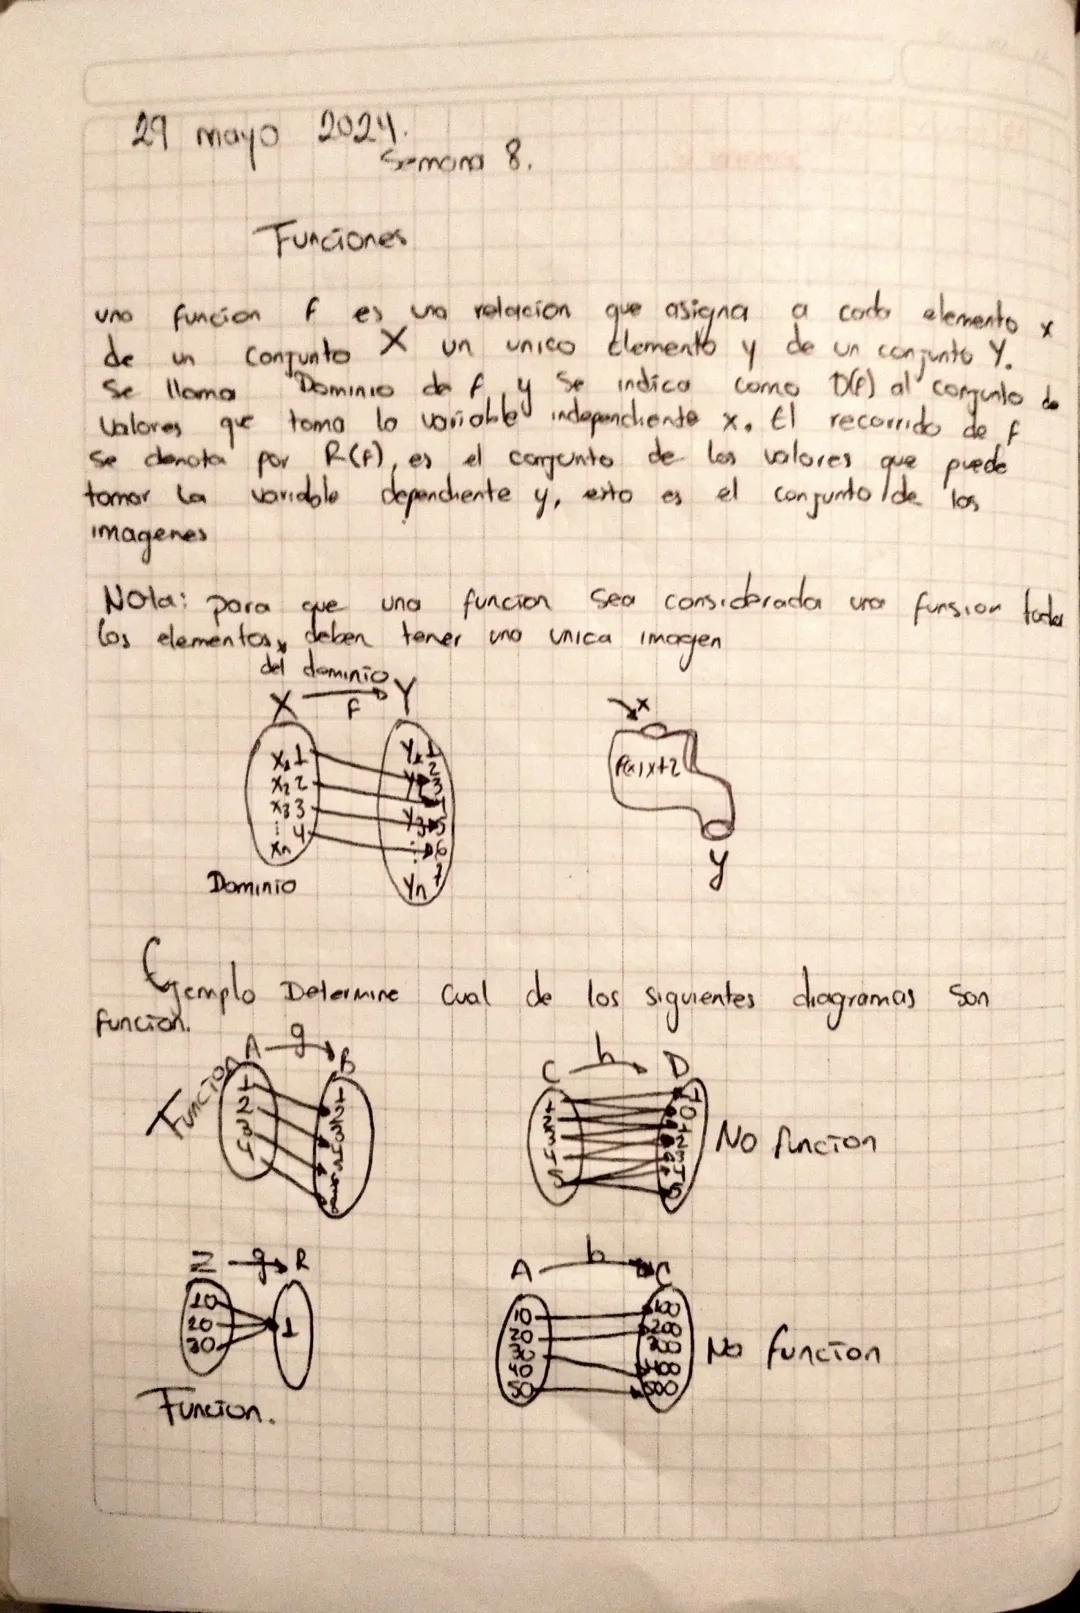 29 mayo 2024.
Semana 8.
Funciones
una funcion f es una relacion que asigna a cada elemento x
de un conjunto X un unico elemento y de un conjunto Y.
Se llama Dominio de f y se indica como D(f) al conjunto de
valores que toma la variable independiente x. El recorrido de f
se denota por R(f), es el conjunto de los valores que puede
tomar la variable dependiente y, esto es el conjunto de los
imagenes
Nota: para que una funcion sea considerada una funsion todos
los elementos deben tener una unica imagen
del dominio
X f Y
x1 1
x2 2
x3 3
⋮ 4
xn
Y1 1
2
Y2 3
Y3 5
⋮ 6
Yn 7
Dominio
x
f(x)x+2
y
Ejemplo Determine cual de los siguientes diagramas son
funcion.
Funcion
A g B
1
2
3
4
C h D
1
2
3
4
5
No funcion
Z g R
10
20
30
1
Funcion.
A h C
10
20
30
40
50
No funcion